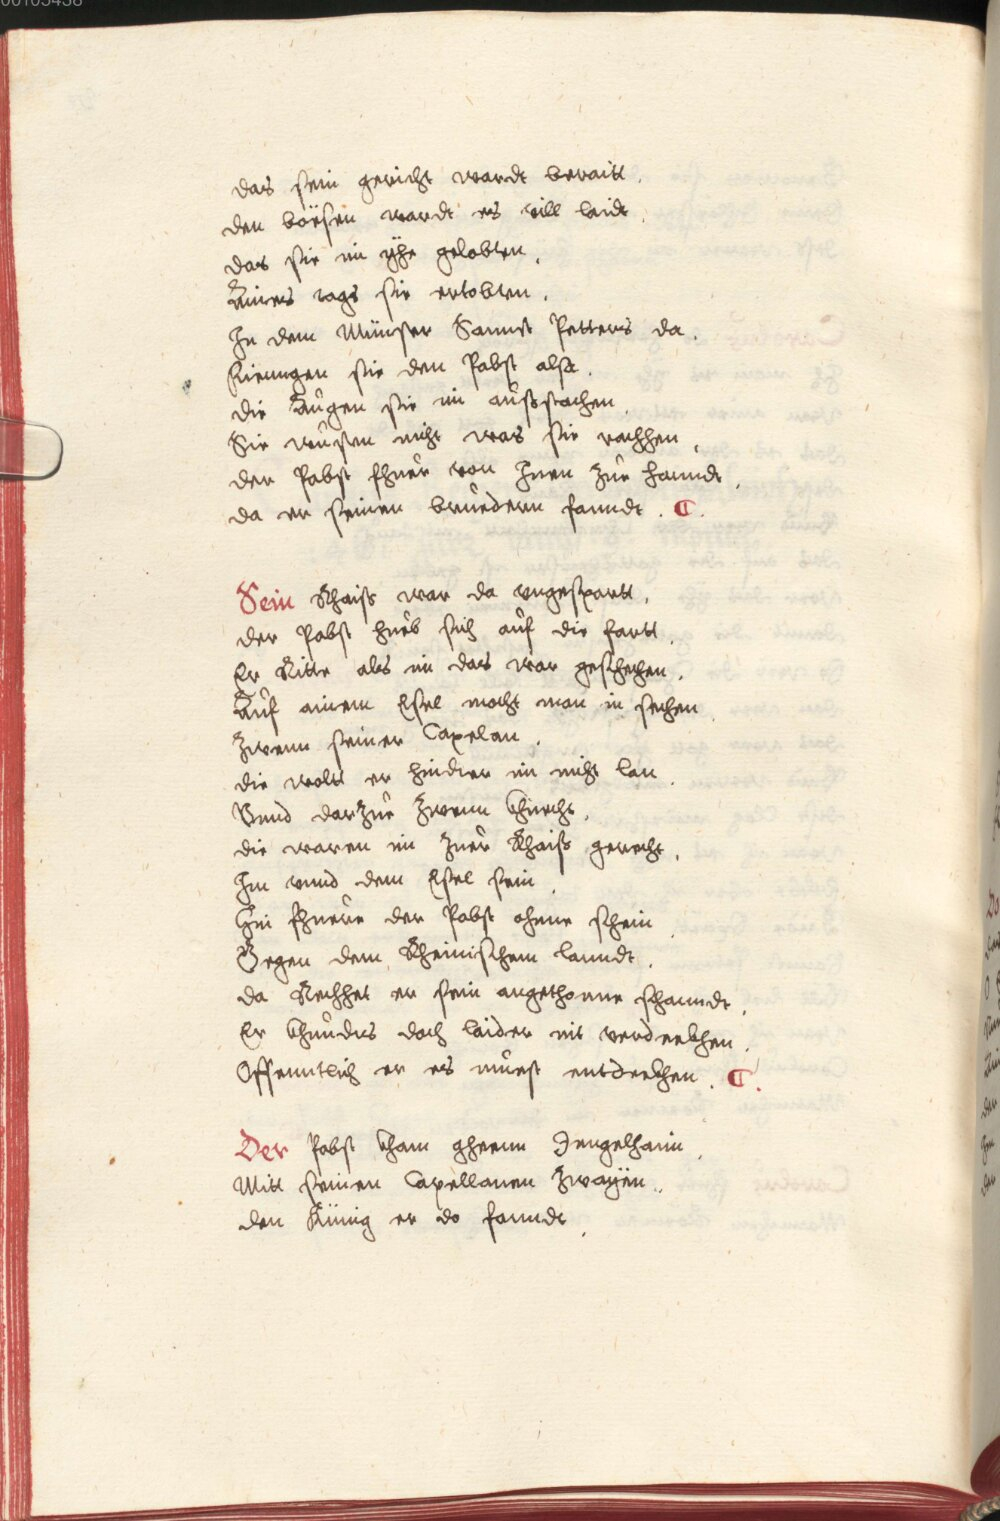 das sein gericht wardt beraitt.
den bösen wardt es vill laidt.
das sie im yhe gelobten.
Aines tags sie ertobten.
In dem Münster Sannt Petters da.
fienngen sie den Pabst also.
die Augen sie im außstachen.
Sie wusten nicht was sie rachhen.
der Pabst fhuer von Inen zue hanndt.
da er seinen bruedern fanndt. ¶.
Sein Rhaiß war da vngespartt.
der Pabst hueb sich auf die fartt.
Er Ritte als im das war geschehen.
Auf ainem Esel mocht man in sechen.
Zwenn seiner Capelan.
die wolt er hindter im nicht lan.
Vnnd darzue Zwenn Chnecht.
die waren im zuer Rhaiß gerecht.
Im vnnd dem Esel sein.
Hin fhuere der Pabst ohnne schein.
Gegen dem Rheinischem lanndt.
da Rechhet er sein angethonne schanndt.
Er Chundts doch laider nit verdeckhen.
Offenntlich er es muest entdeckhen. ¶.
Der Pabst Cham gheenn Inngelhaim.
Mitt seinen Capellanen Zwayen.
den Künig er do fanndt.